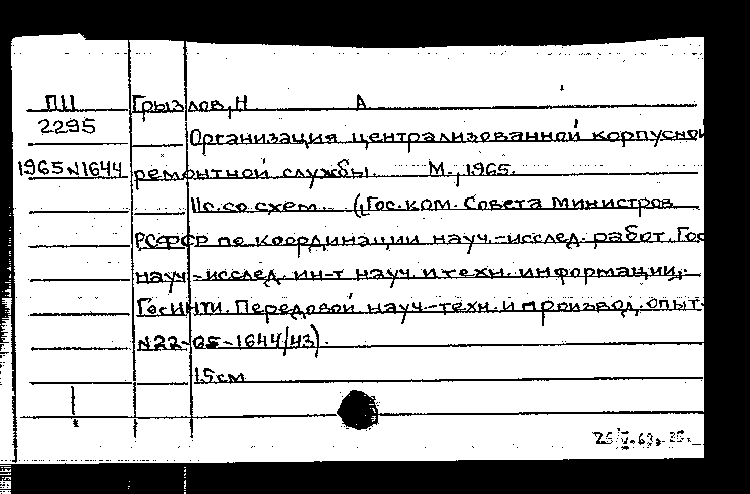 ПII Грызлов, Н А
2295
Организация централизованной корпусной
1965 N1644 ремонтной службы. М., 1965.
11с. со схем. (Гос. ком. Совета Министров
РСФСР по координации науч.-исслед. работ. Гос
науч-исслед. ин-т науч. и техн. информации,
ГосИНТИ. Передовой науч-техн. и производ. опыт
N22-05-1644/43).
15см